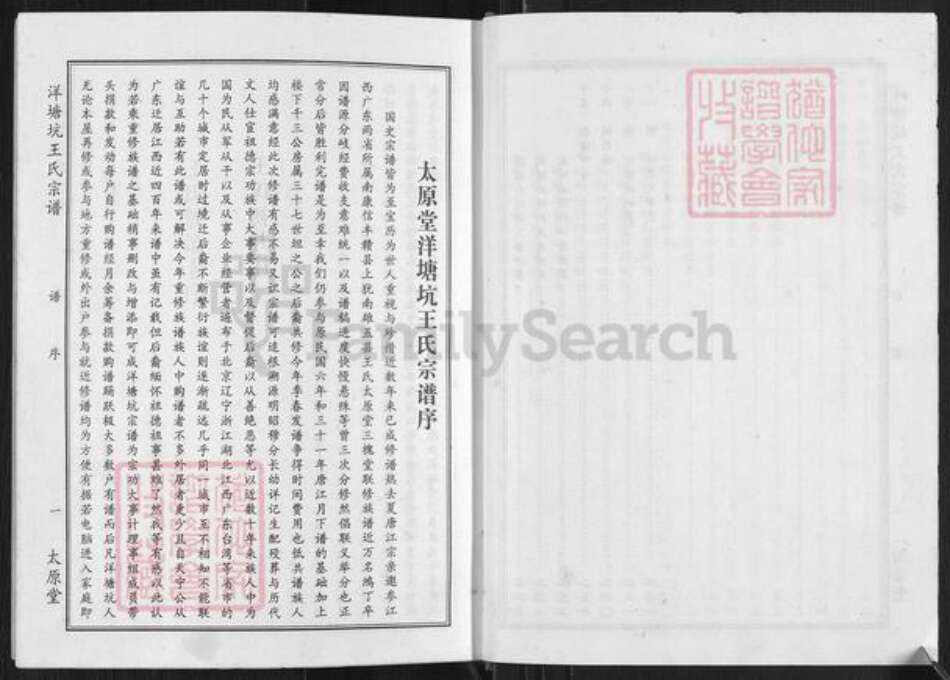 太原堂洋塘坑王氏宗谱序
国史宗谱皆为至宝历为世人重视与珍惜近数年来已成修谱热去夏唐江宗亲邀参江
西广东两省所属南康信丰赣县上犹南雄五县王氏太原堂三槐堂联修族谱近万名鸿丁卒
因谱源分岐经费收支意难统一以及谱稿进度快慢悬殊等曾三次分修然倡联又举分也正
常分后皆胜利完谱是为至幸我们仍参与原民国六年和三十一年唐江月下谱的基础加上
楼下千三公房属三十七世坦之公之后裔共修今年季春发谱争得时间费用也低共谱族人
均感满意经此次修谱有感不易又识宗谱可追根溯源明昭穆分长幼详记生配殁葬与历代
文人仕宦祖德宗功族中大事要事以及督促后裔以从善绝恶等尤以近数十年来族人中为
国为民从军从干以及从事企业经营者遍布于北京辽宁浙江湖北江西广东台湾等省市的
几十个城市定居时过境迁后裔不断繁衍族谊则逐渐疏远几乎同一城市互不相知不能联
谊与互助若有此谱或可解决今年重修族谱族人中购谱者不多外居者更少且自天宁公从
广东迁居江西近四百年来谱中虽有记载但后裔缅怀祖德祖事甚难了然我等有感以此认
为若乘重修族谱之基础稍事删改与增添即可成洋塘坑宗谱为宗功大事计理事组成员带
头捐款和发动每户自行购谱经月余筹备捐款购谱踊跃极大多数户有谱而后凡洋塘坑人
无论本屋再修或参与地方重修或外出户参与就近修谱均为方便有据若电脑进入家庭即
洋塘坑王氏宗谱
谱序
一
太原堂
FamilySearch
谱学会
收藏